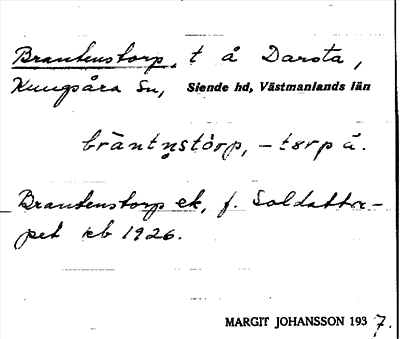 Brantenstorp, t å Darsta,
Kungsåra sn, Siende hd, Västmanlands län
bräntṇstòrp, – torp ä.
Brantenstorp ek, f. Soldattor-
pet kb 1926.
MARGIT JOHANSSON 1937.